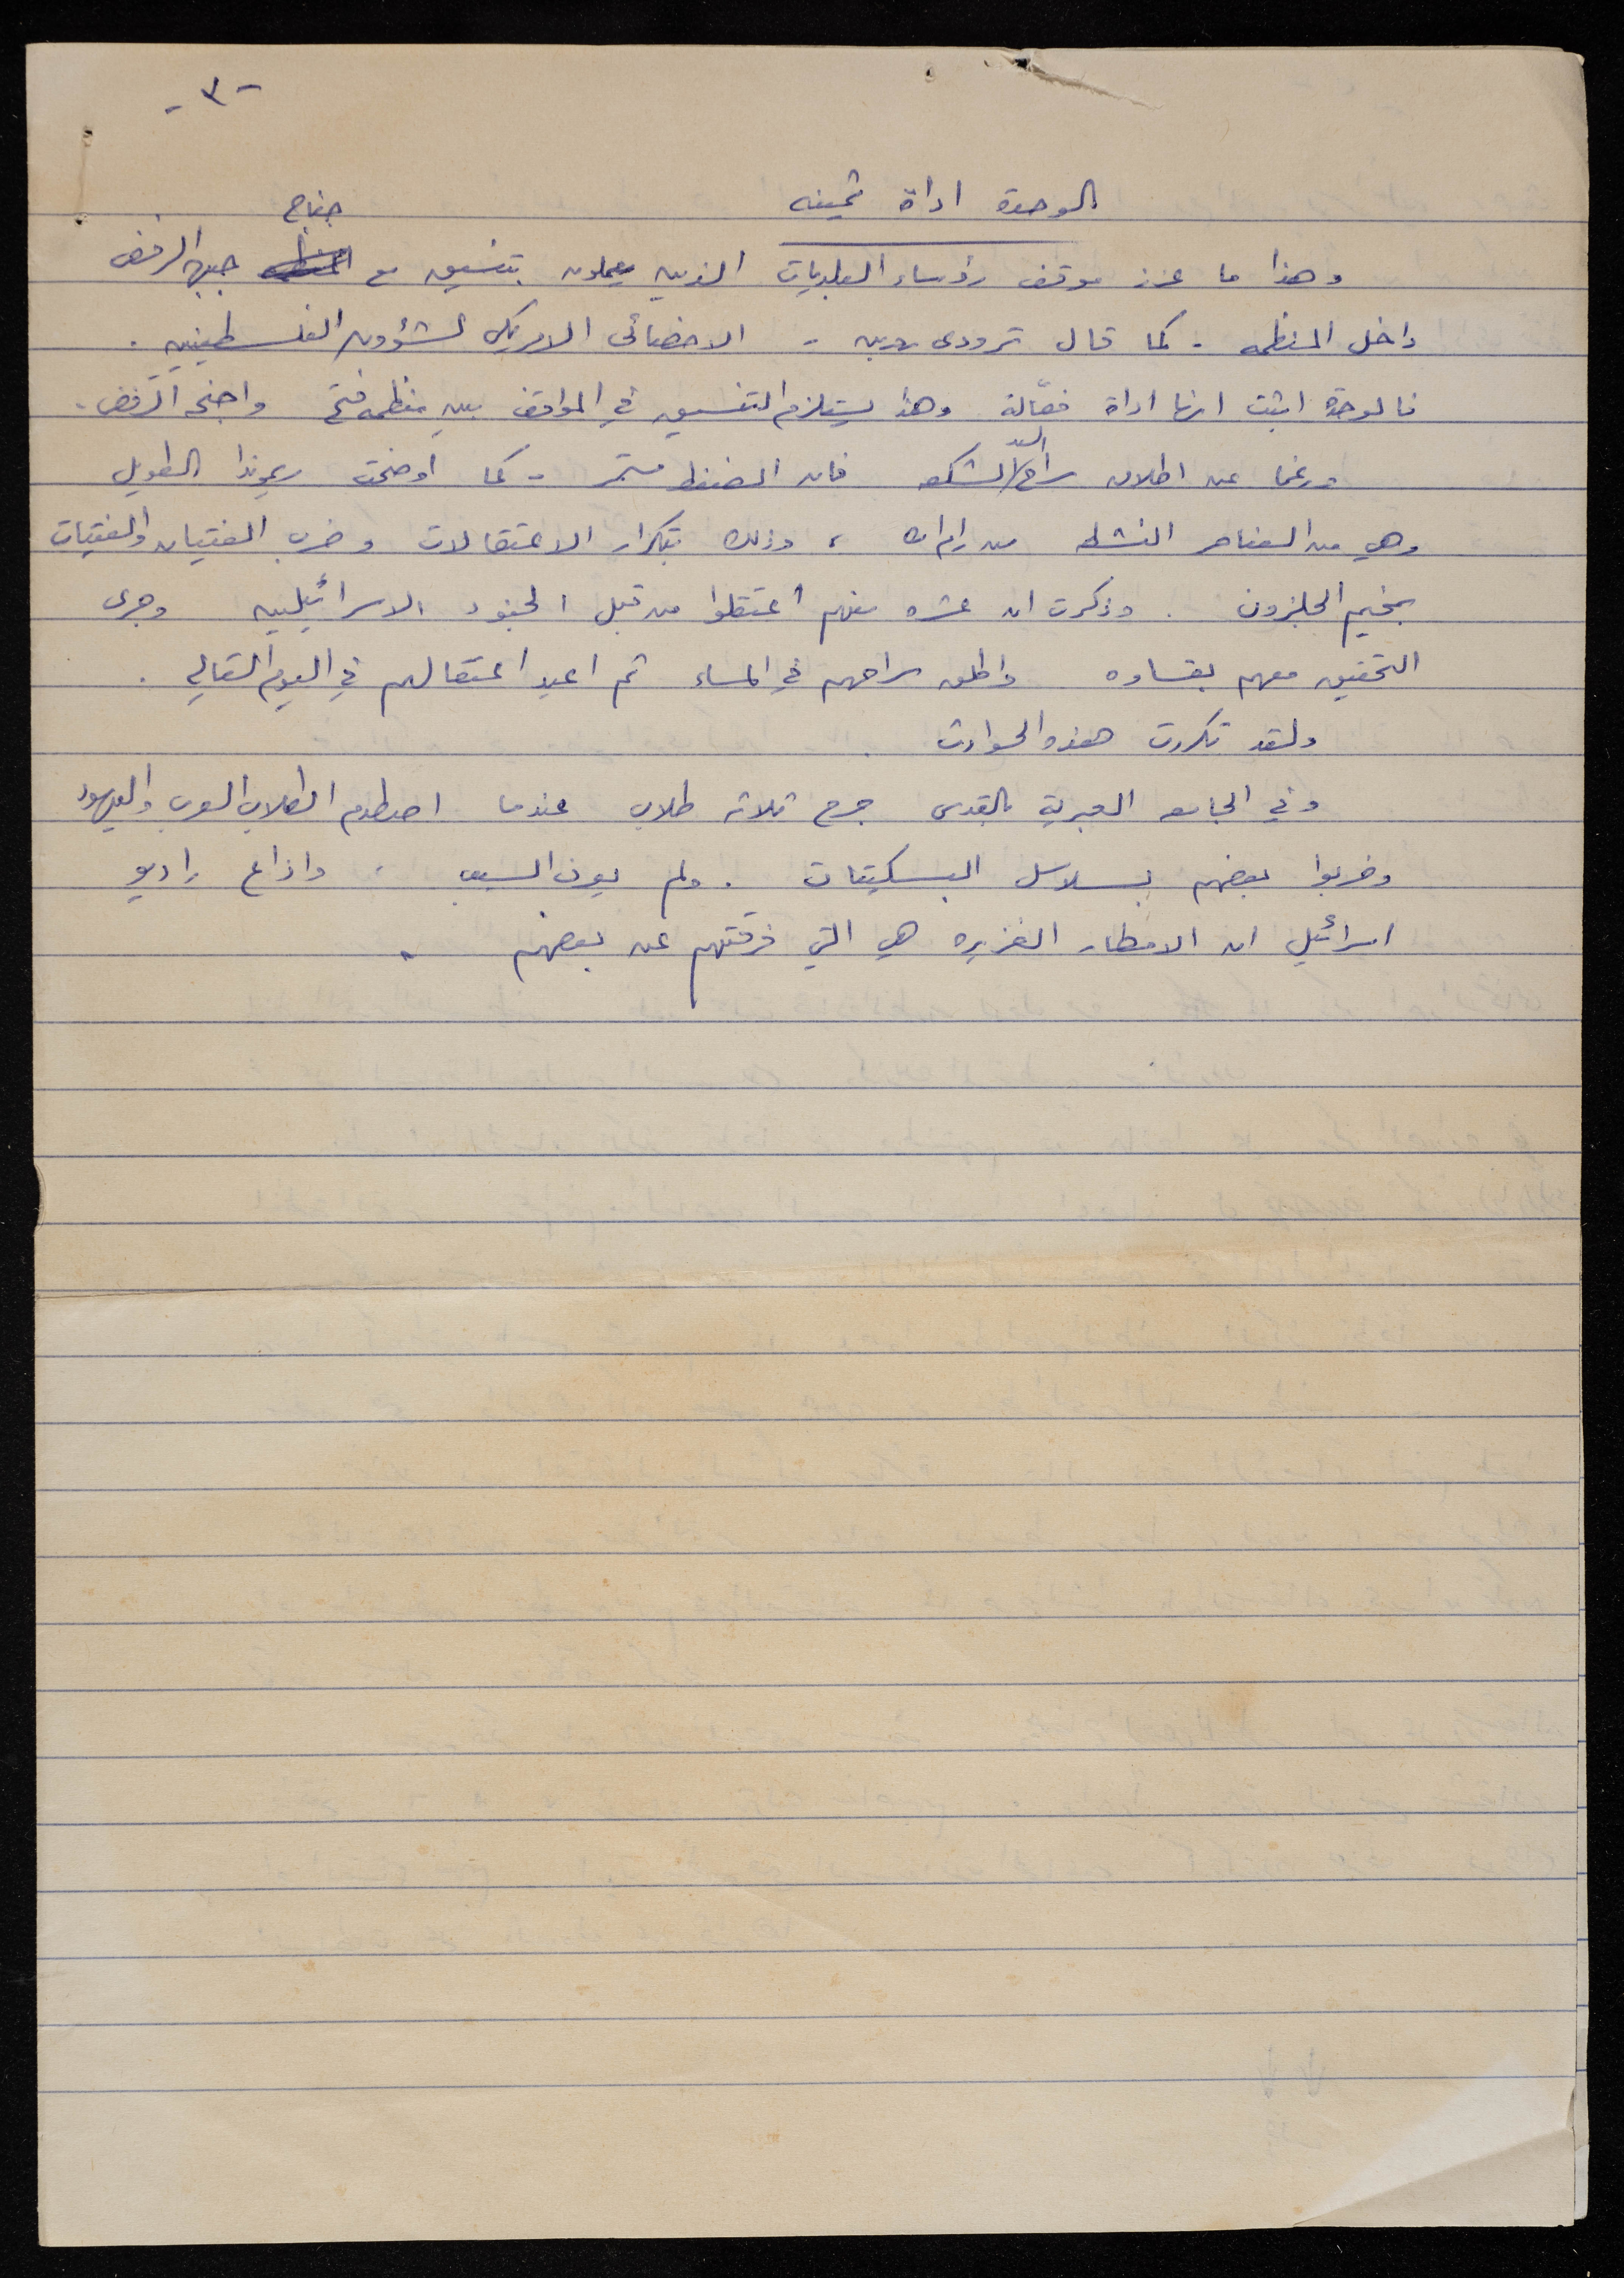 -٣-
الوحدة اداة ثمينه
جناح
وهذا ما عزز موقف رؤساء البلديات الذين يعملون بتنسيق مع جبهة الرفض
داخل المنظمه - كما قال ترودى روبين - الاخصائى الامريكى لشؤون الفلسطينيين .
فالوحدة اثبت انها اداة فعّالة وهذا يستلزم التنسيق في المواقف بين منظمه فتح واجنحه الرفض .
السيد
ورغما عن اطلاق سراح / الشكعه فان الضغط مستمر - كما اوضحت ريموندا الطويل
وهي من العناصر النشطه من رام الله ، وذلك بتكرار الاعتقالات وضرب الفتيان والفتيات
بمخيم الجلزون . وذكرت ان عشره منهم اعتقلوا من قبل الجنود الاسرائيليين وجرى
التحقيق معهم بقساوه واطلق سراحهم في المساء ثم اعيد اعتقالهم في اليوم التالي .
ولقد تكررت هذه الحوادث .
وفي الجامعه العبرية بالقدس جرح ثلاثه طلاب عندما اصطدم الطلاب العرب واليهود
وضربوا بعضهم بسلاسل البسكيتات . ولم يعرف السبب . واذاع راديو
اسرائيل ان الامطار الغزيره هي التي فرقتهم عن بعضهم .